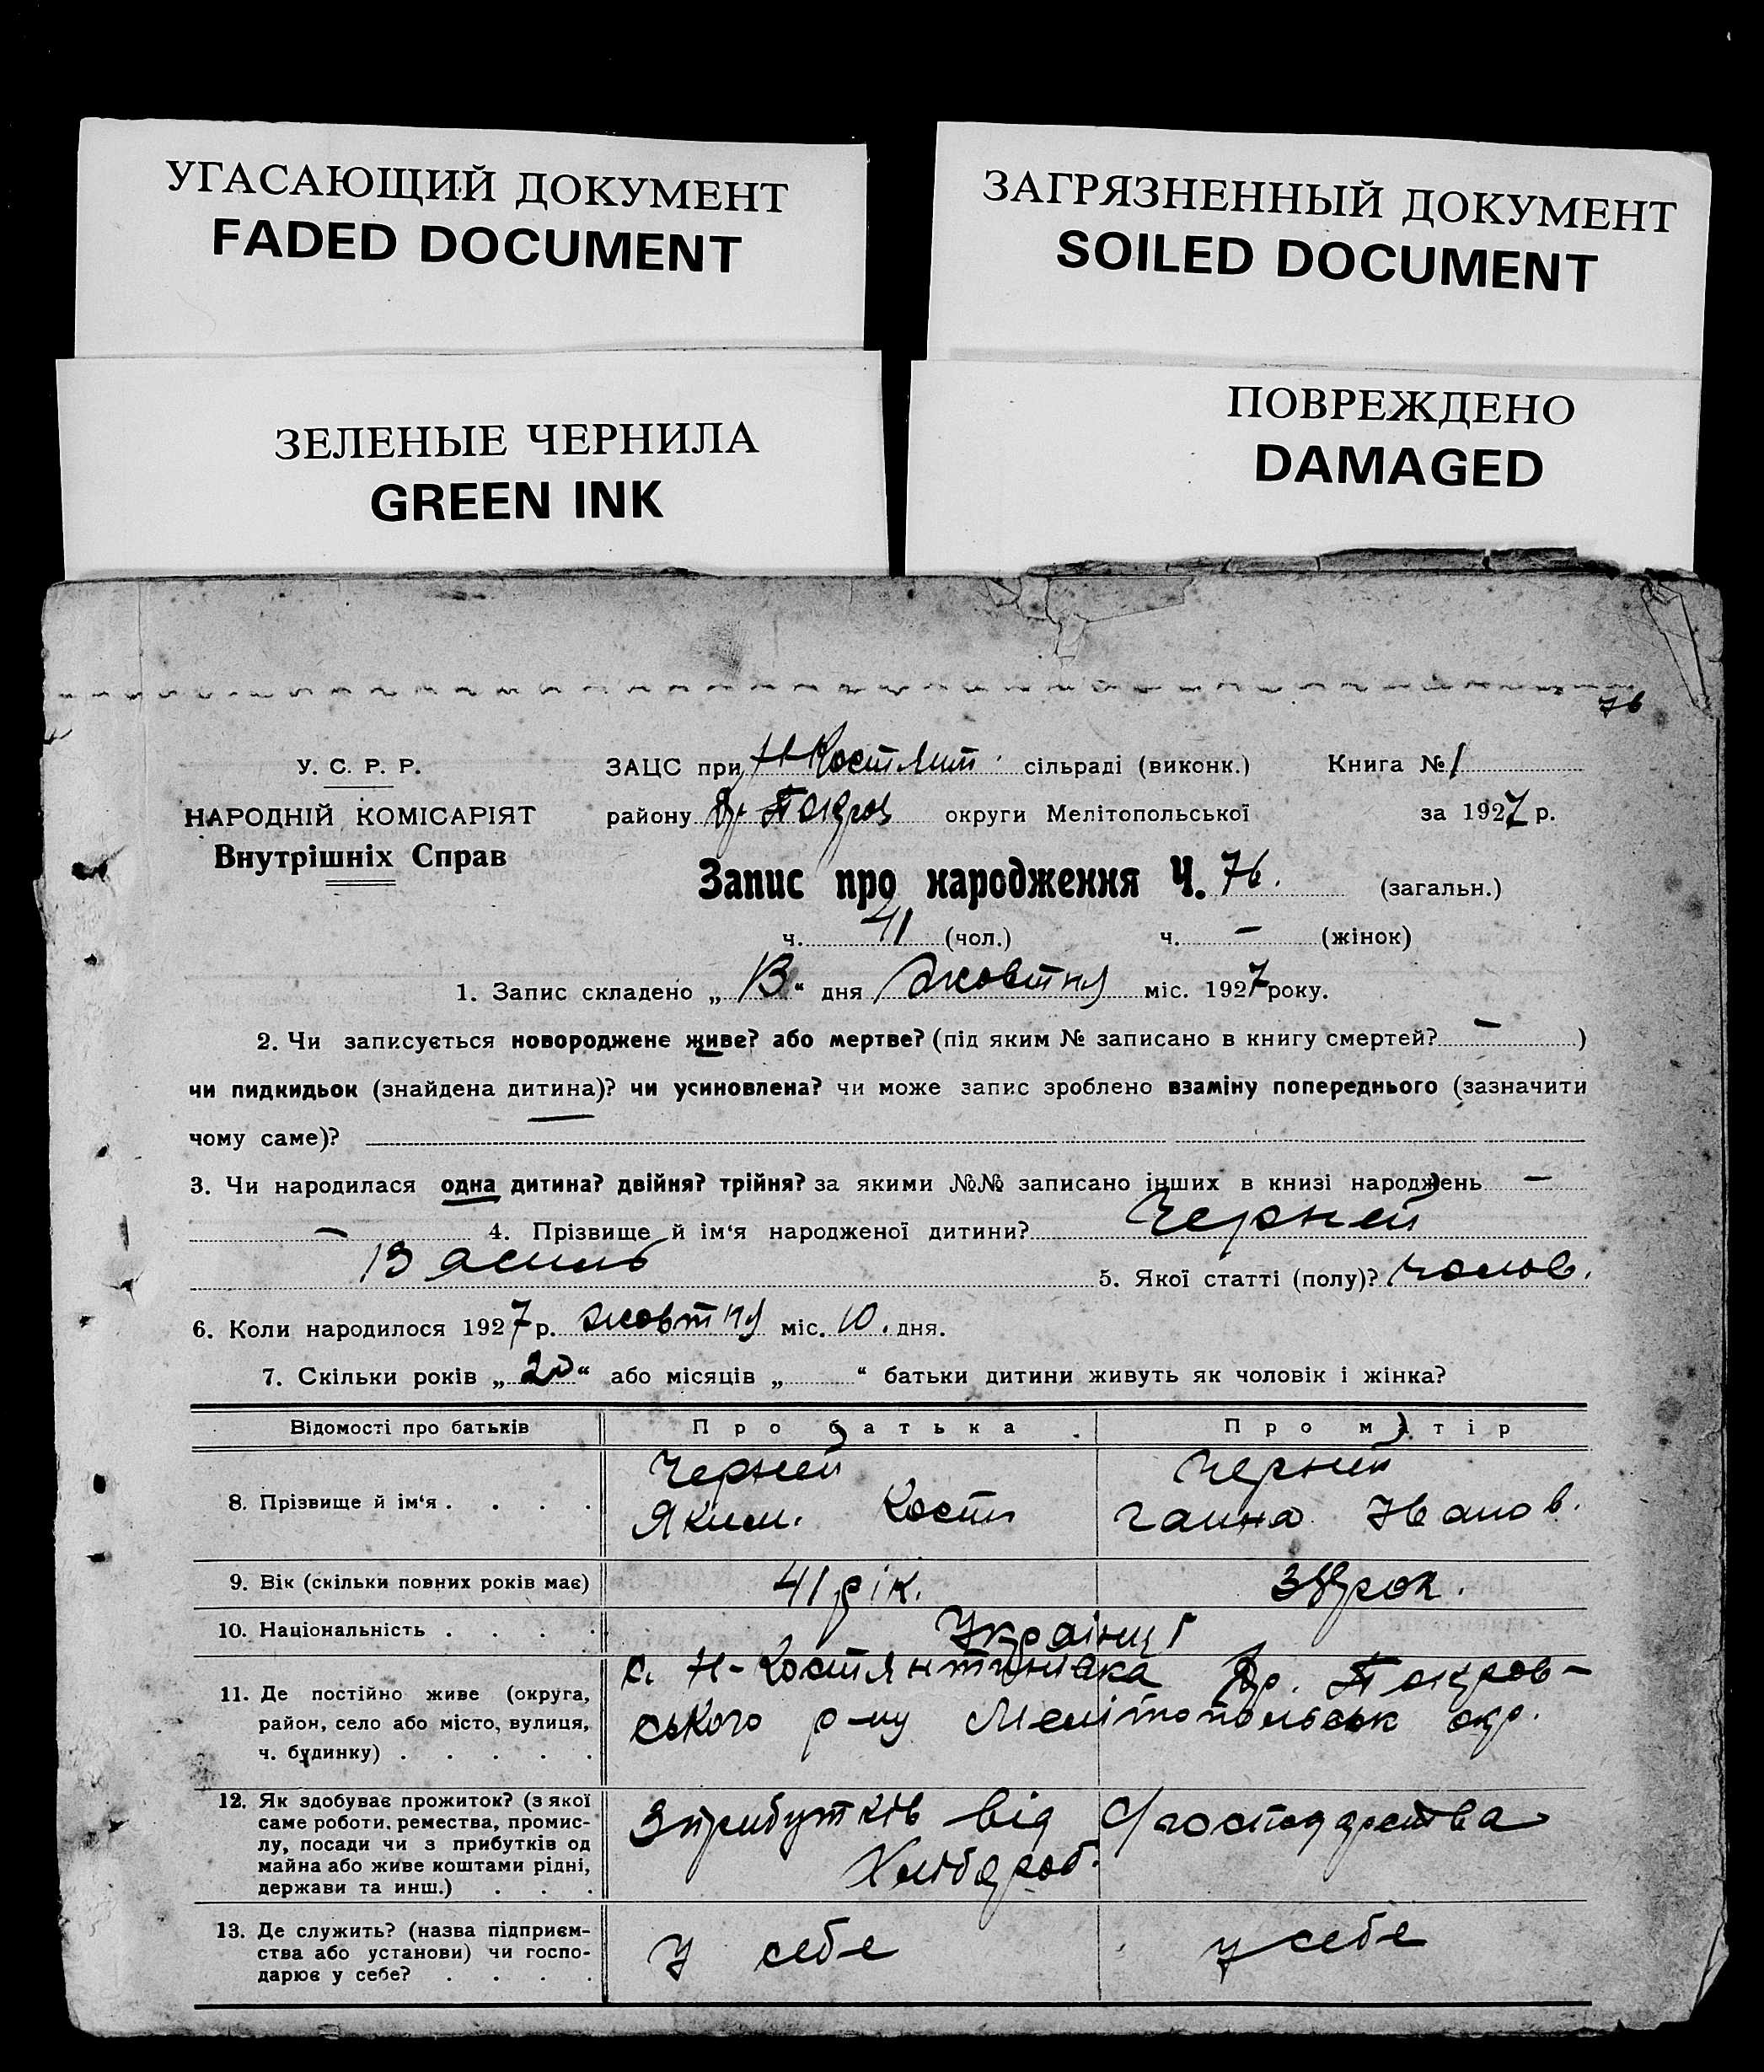 УГАСАЮЩИЙ ДОКУМЕНТ
FADED DOCUMENT
ЗАГРЯЗНЕННЫЙ ДОКУМЕНТ
SOILED DOCUMENT
ЗЕЛЕНЫЕ ЧЕРНИЛА
GREEN INK
ПОВРЕЖДЕНО
DAMAGED
76
У. С. Р. Р.
НАРОДНІЙ КОМІСАРІЯТ
Внутрішніх Справ
ЗАЦС при Н-Костянт. сільраді (виконк.) Книга № 1
району Др. Покров округи Мелітопольської за 1927 р.
Запис про народження Ч. 76. (загальн.)
ч. 41 (чол.) ч. — (жінок)
1. Запис складено „ 13 “ дня жовтня міс. 1927 року.
2. Чи записується новороджене живе? або мертве? (під яким № записано в книгу смертей? — )
чи пидкидьок (знайдена дитина)? чи усиновлена? чи може запис зроблено взаміну попереднього (зазначити
чому саме)? —
3. Чи народилася одна дитина? двійня? трійня? за якими №№ записано інших в книзі народжень —
— 4. Прізвище й ім‘я народженої дитини? Черней
Василь 5. Якої статті (полу)? чолов.
6. Коли народилося 1927 р. жовтня міс. 10. дня.
7. Скільки років „ 20 “ або місяців „ “ батьки дитини живуть як чоловік і жінка?
Відомості про батьків Про батька Про матір
8. Прізвище й ім‘я . . . . Черней Черней
Яким. Кость Ганна Іванов.
9. Вік (скільки повних років має) 41 рік. 38 рок.
10. Національність . . . . Українці
11. Де постійно живе (округа, район, село або місто, вулиця, ч. будинку) . . . . . с. Н-Костянтинівка Др. Покров-
ського р-ну Мелітопольськ окр.
12. Як здобуває прожиток? (з якої саме роботи, ремества, промислу, посади чи з прибутків од майна або живе коштами рідні, держави та инш.) . . . З прибутків від с/господарства
Хлібороб.
13. Де служить? (назва підприємства або установи) чи господарює у себе? . . . . У себе у себе